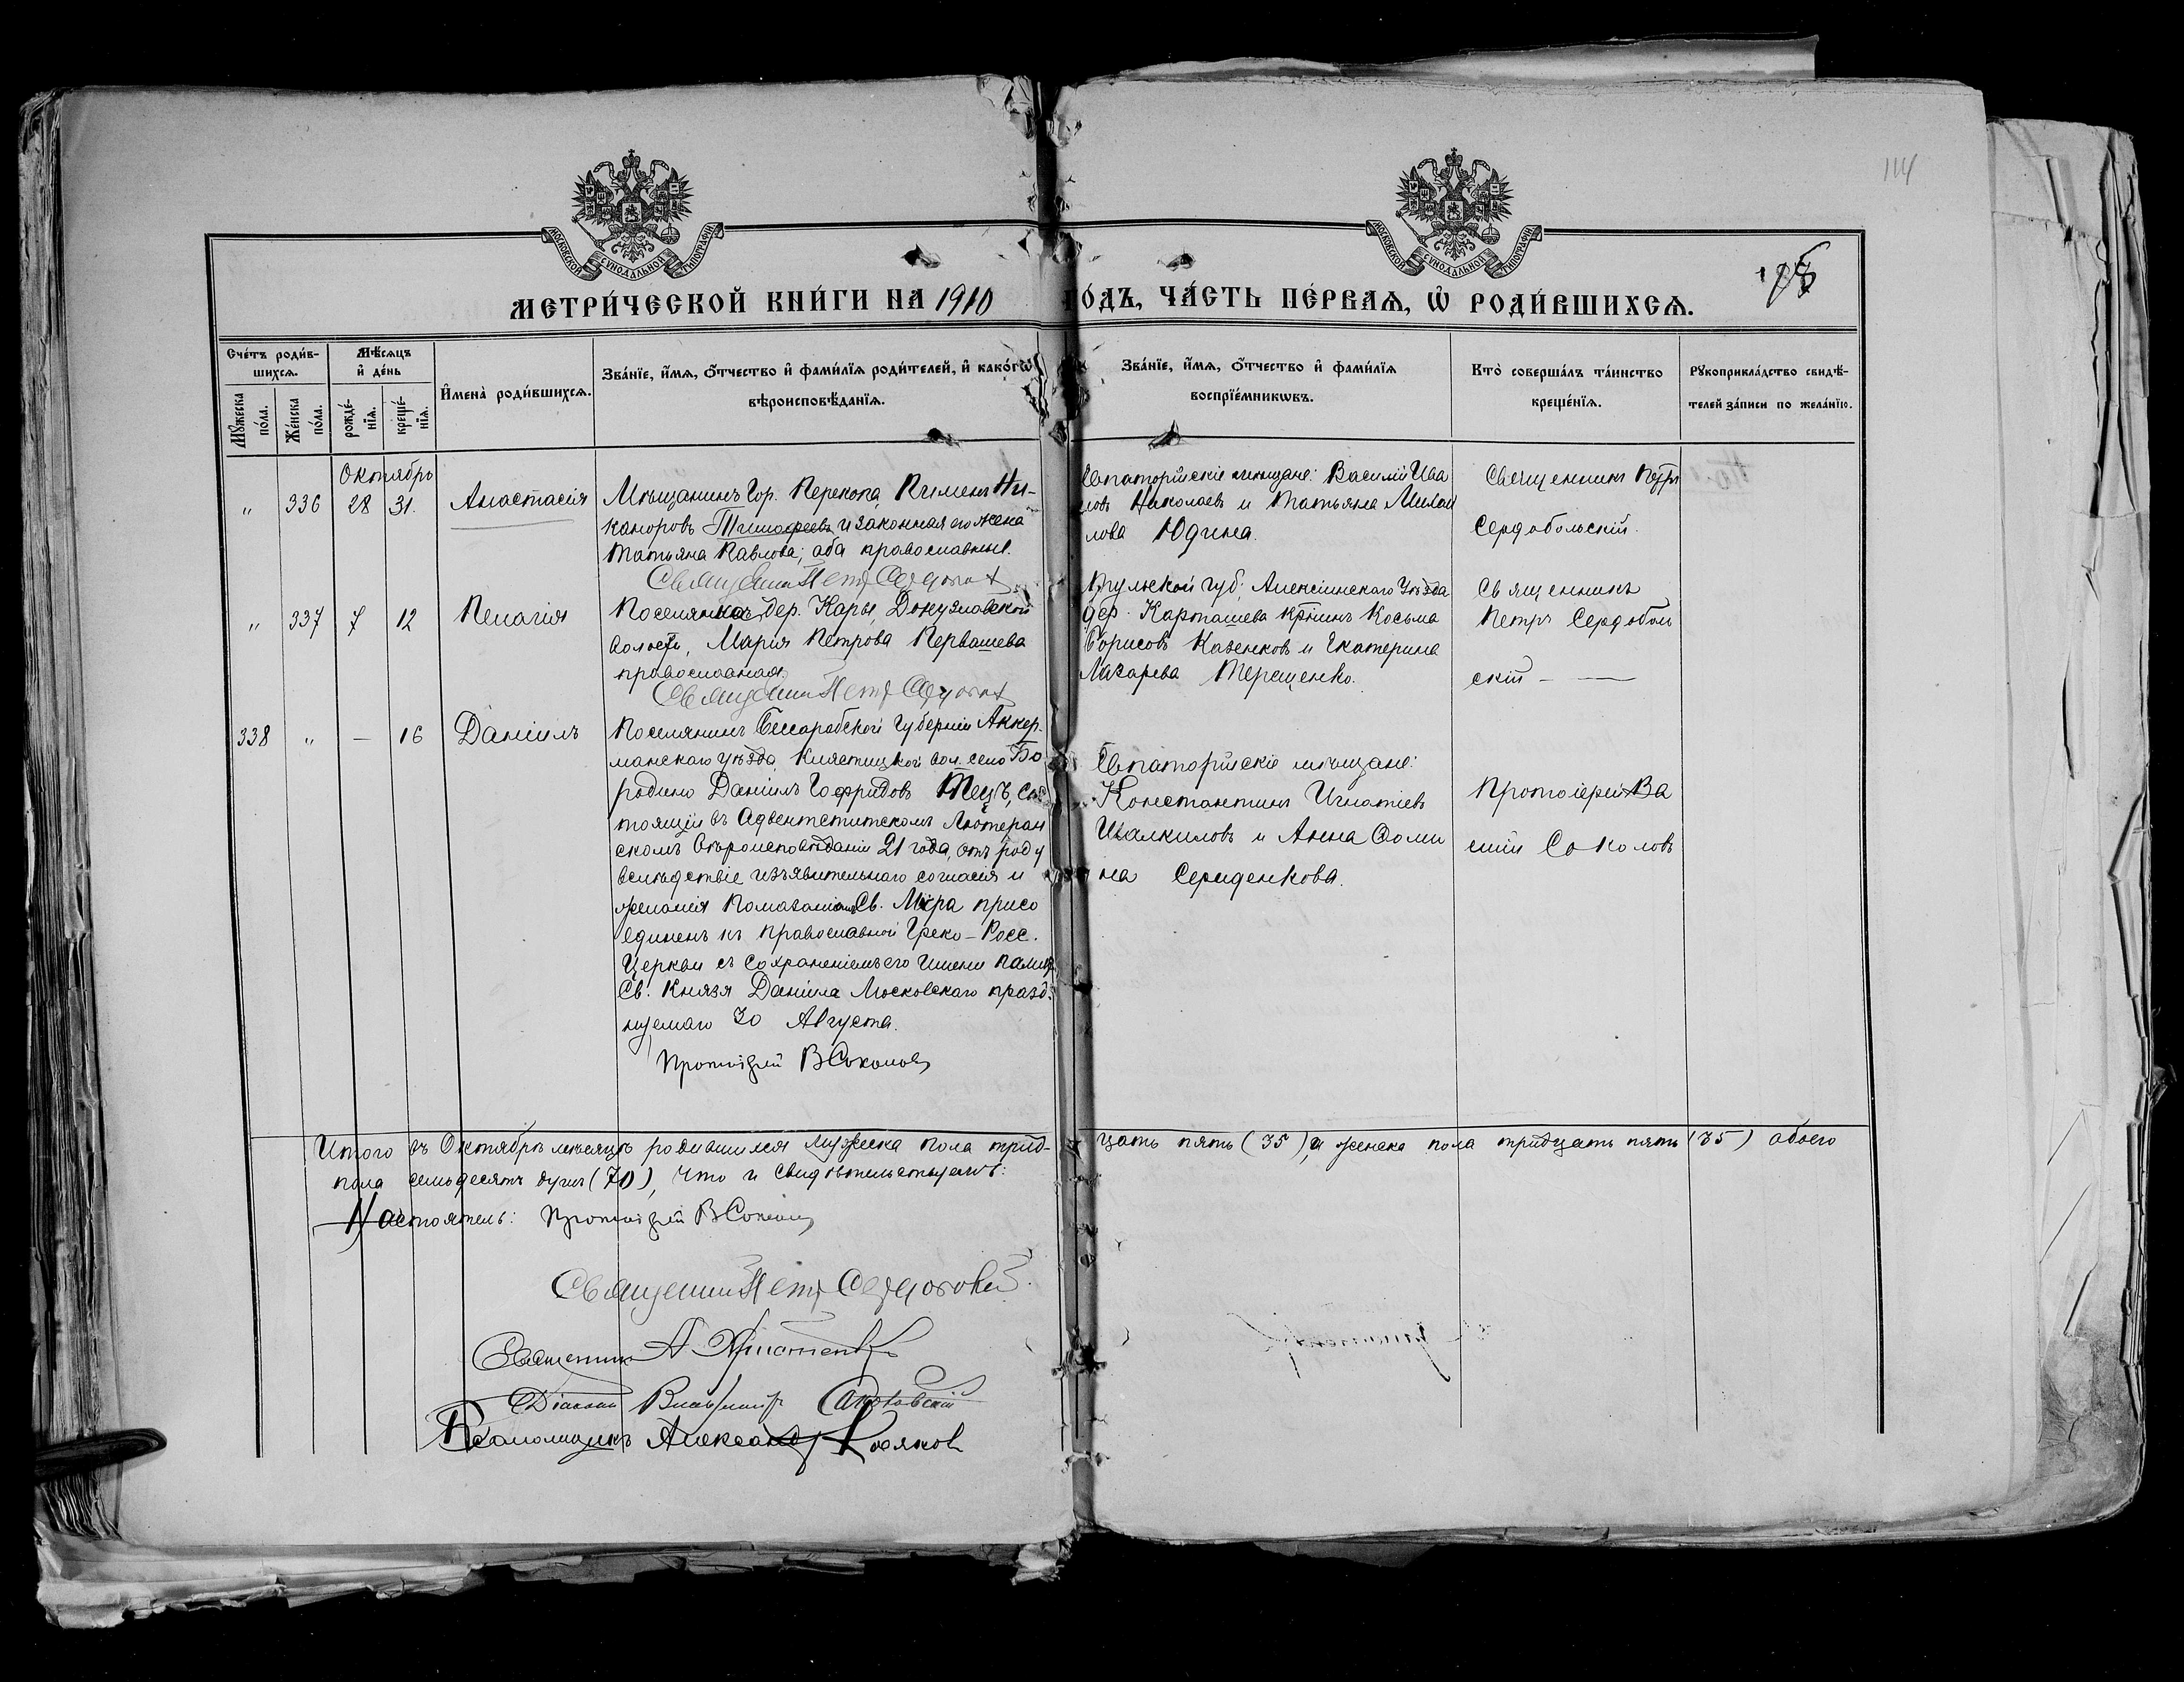 114
МОСКОВСКОЙ СУНОДАЛЬНОЙ ТИПОГРАФІИ
МОСКОВСКОЙ СУНОДАЛЬНОЙ ТИПОГРАФІИ
МЕТРИ́ЧЕСКОЙ КНИ́ГИ НА 1910 ГО́ДЪ, ЧА́СТЬ ПЕ́РВАѦ, Ѡ҆ РОДИ́ВШИХСѦ.
Сче́тъ роди́в-
шихсѧ.
Мꙋ́жеска по́ла.
Же́нска по́ла.
Мѣ́сѧцъ
и҆ де́нь
рожде́-
нїѧ.
креще́-
нїѧ.
И҆мена̀ роди́вшихсѧ.
Зва́нїе, и҆́мѧ, ѻ҆́тчество и҆ фами́лїѧ роди́телей, и҆ како́гѡ
вѣроисповѣ́данїѧ.
Зва́нїе, и҆́мѧ, ѻ҆́тчество и҆ фами́лїѧ
воспрїе́мникѡвъ.
Кто̀ соверша́лъ та́инство
креще́нїѧ.
Рꙋкоприкла́дство свидѣ́-
телей за́писи по жела́нїю.
Октябрь
„ 336 28 31. Анастасія
Мѣщанинъ Гор. Перекопа, Пименъ Ни-
каноровъ Тимофеевъ и законная его жена
Татьяна Павлова; оба православные.
Священникъ Петръ
Евпаторійскіе мещане: Василій Ива
новъ Николаевъ и Татьяна Михаи
лова Юдина.
Священникъ Петръ
Сердобольскій.
„ 337 7 12 Пелагія
Поселянка дер. Кары, Донузлавской
волости, Марія Петрова Первашева
православная
Священникъ Петръ
Тульской губ; Алексинскаго Уѣзда
дер. Карташева Кр-нинъ Косьма
Борисовъ Казенковъ и Екатерина
Лазарева Терещенко.
Священникъ
Петръ Сердоболь
скій —
338 „ — 16 Даніилъ
Поселянинъ Бессарабской Губерніи Аккер-
манскаго уѣзда, Клястицкой вол. село Бо
родино Даніилъ Гофридовъ Тецъ, сос
тоящій въ Адвентитскомъ Лютеран
скомъ Вѣроисповѣданіи 21 года, отъ роду
вслѣдствіе изъявительнаго согласія и
желанія Помазаніемъ Св. Мѵра присо
единенъ къ Православной Греко-Росс.
Церкви съ сохраненіемъ его имени памят.
Св. Князя Даніила Московскаго празд-
нуемаго 30 Августа.
Протоіерей В Соколовъ
Евпаторійскіе мѣщане:
Константинъ Игнатіевъ
и Анна Фоми
на Середенкова.
Протоіерей Ва
силій Соколовъ
Итого въ Октябрѣ мѣсяцѣ родившихся мужеска пола трид-цать пять (35), а женска пола тридцать пять (35) обоего
пола семьдесятъ душъ (70), что и свидѣтельствуемъ:
Настоятель: Протоіерей В Соколовъ
Священникъ Петръ
Священникъ А
Діаконъ Владиміръ
Псаломщикъ Александръ Косяковъ